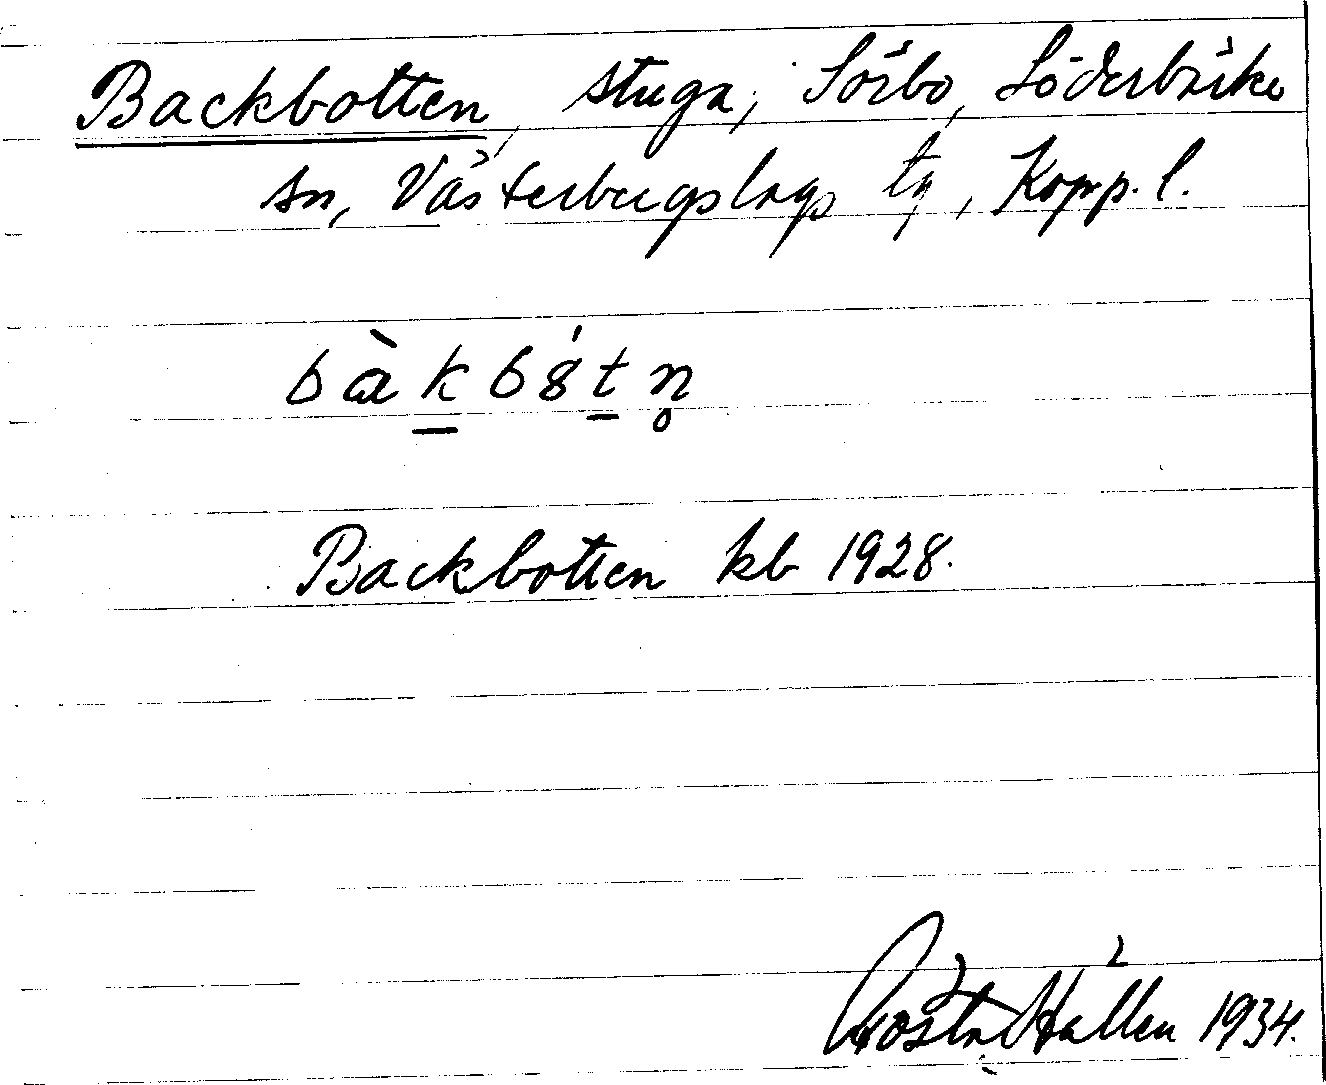 Backbotten, stuga, Sörbo, Söderbärke
sn, Västerbergslags tg, Kopp. l.
bàkbótn̥
Backbotten kb 1928.
Gösta Hällen 1934.